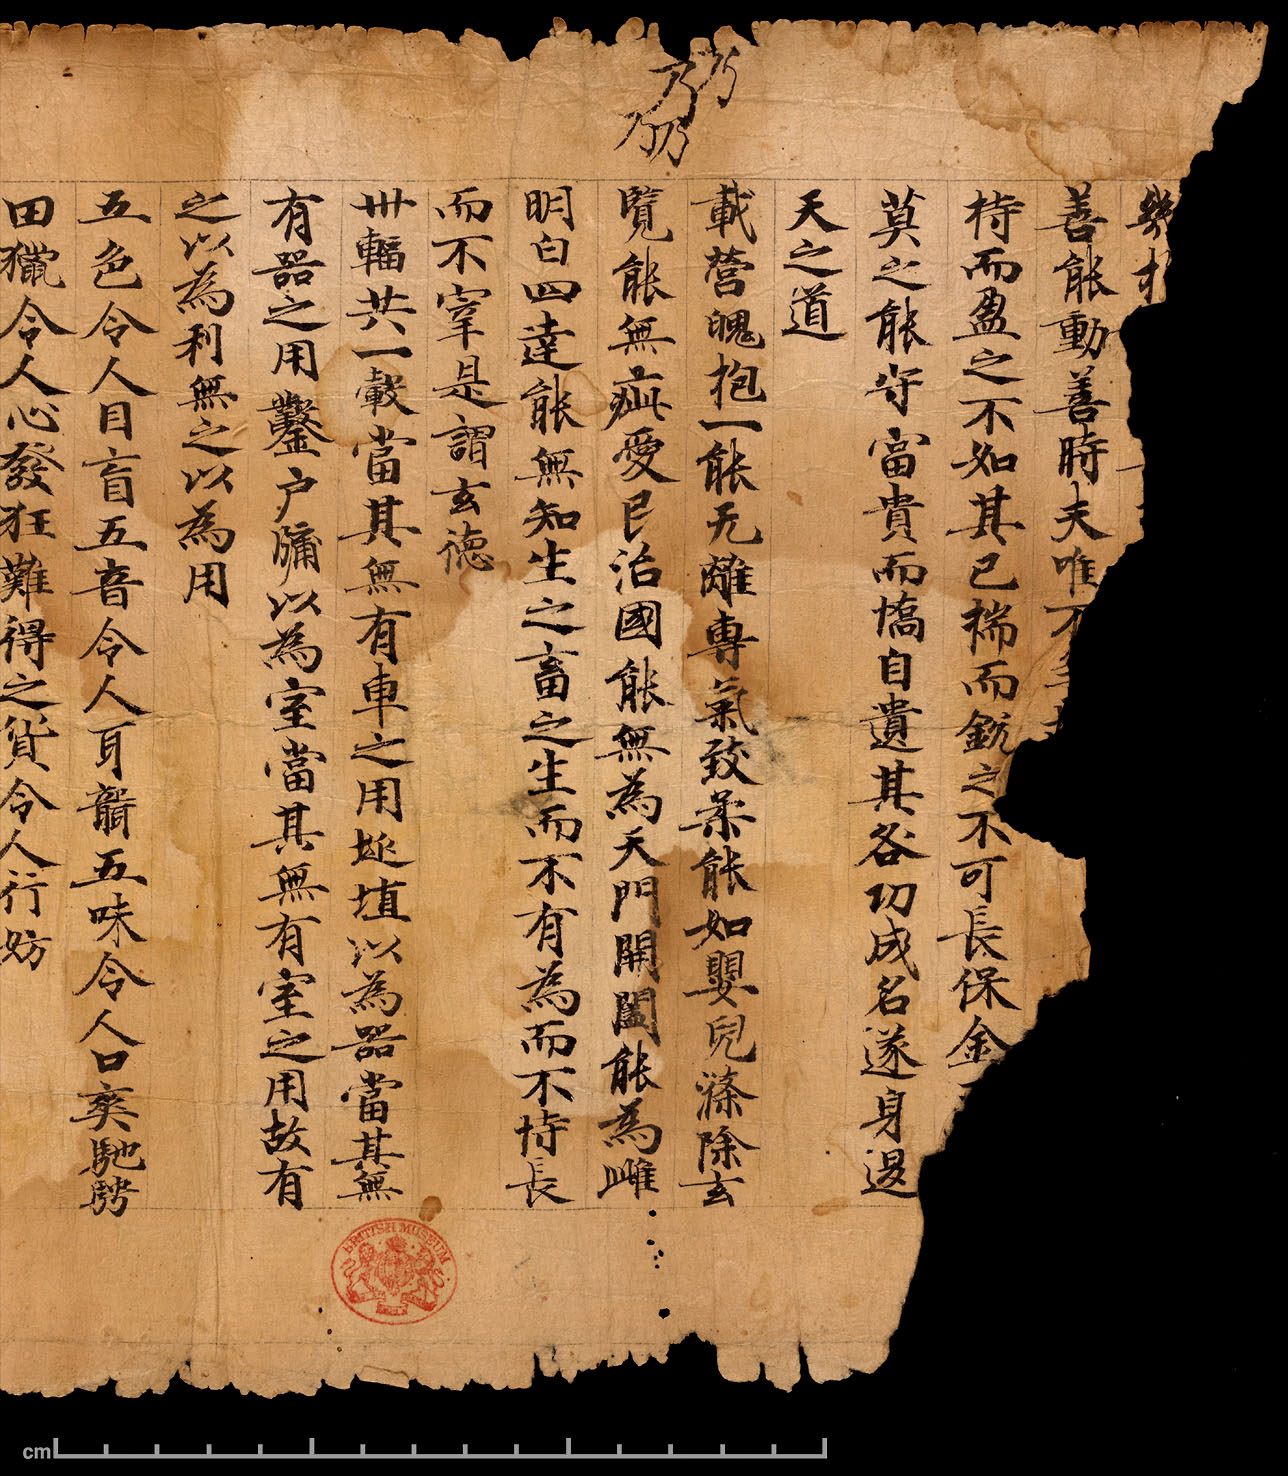 乃
乃
乃
乃
善能動善時夫唯不
持而盈之不如其已揣而銳之不可長保金
莫之能守富貴而憍自遺其咎功成名遂身退
天之道
載營魄抱一能无離專氣致柔能如嬰兒滌除玄
覽能無疵愛民治國能無為天門開闔能為雌
明白四達能無知生之畜之生而不有為而不恃長
而不宰是謂玄德
卅輻共一轂當其無有車之用埏埴以為器當其無
有器之用鑿户牖以為室當其無有室之用故有
之以為利無之以為用
五色令人目盲五音令人耳聾五味令人口爽馳騁
田獵令人心發狂難得之貨令人行妨
BRITISH MUSEUM
cm